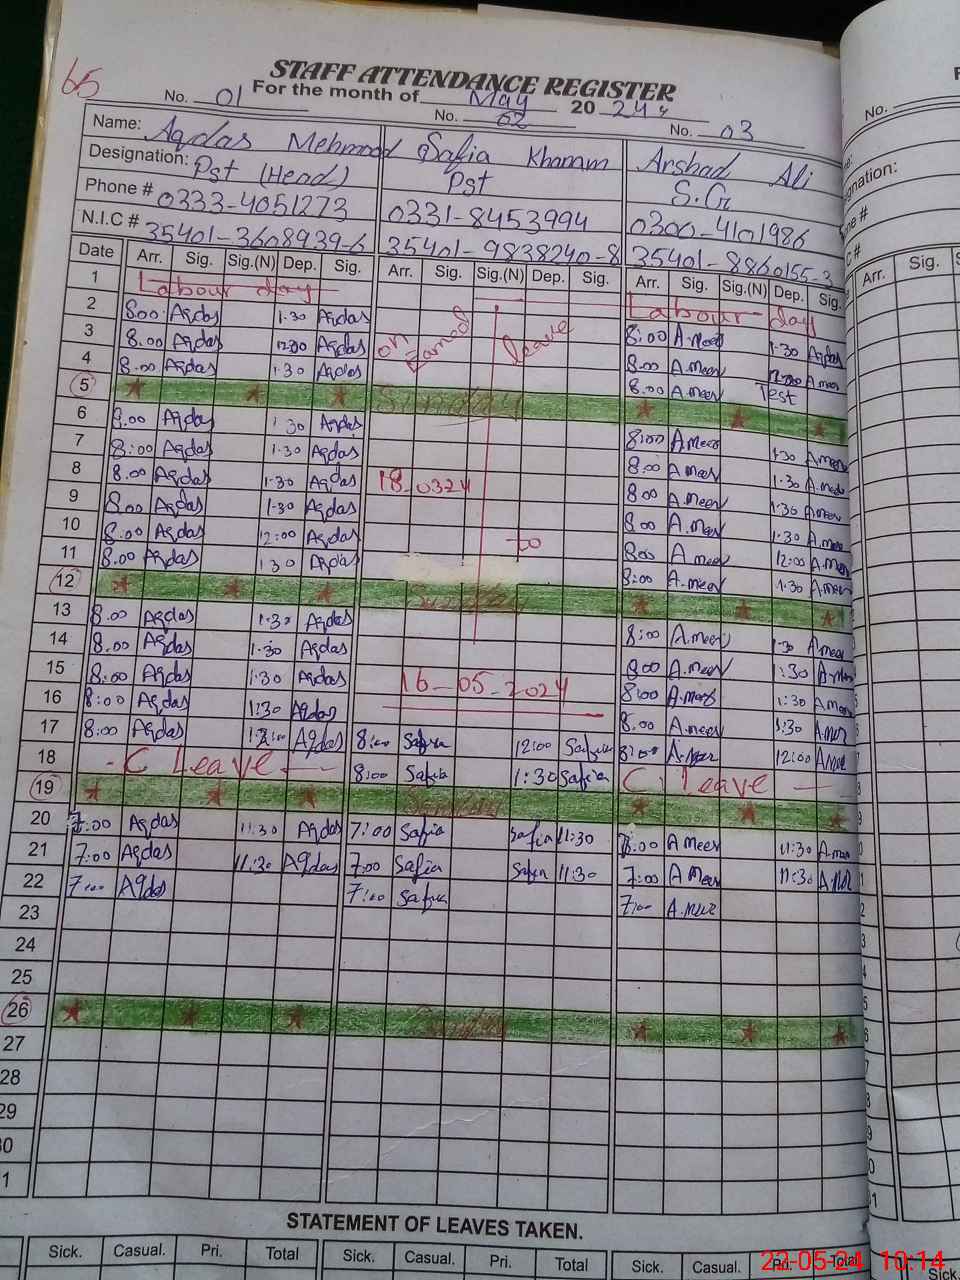 65
STAFF ATTENDANCE REGISTER
For the month of May 2024
No. 01 No. 02 No. 03
Name: Aqdas Mehmood Safia Khanam Arshad Ali
Designation: Pst (Head) Pst S.G
Phone # 0333-4051273 0331-8453994 0300-4101986
N.I.C # 35401-3608939-6 35401-9838240-8 35401-8860155-3
Date Arr. Sig. Sig.(N) Dep. Sig. Arr. Sig. Sig.(N) Dep. Sig. Arr. Sig. Sig.(N) Dep. Sig.
1 Labour day Labour day
2 8:00 Aqdas 1:30 Aqdas on Earned leave 8:00 A.meer 1:30 Aqdas
3 8.00 Aqdas 12:00 Aqdas 8.00 A.meer 12:00 A.meer
4 8.00 Aqdas 1:30 Aqdas 8.00 A.meer Test
5 Sunday
6 8.00 Aqdas 1:30 Aqdas 8:00 A.meer 1:30 A.meer
7 8:00 Aqdas 1:30 Aqdas 8.00 A.meer 1:30 A.meer
8 8.00 Aqdas 1:30 Aqdas 18.0324 8:00 A.meer 1:30 A.meer
9 8.00 Aqdas 1:30 Aqdas 8:00 A.meer 1:30 A.meer
10 8:00 Aqdas 12:00 Aqdas to 8:00 A.meer 12:00 A.meer
11 8.00 Aqdas 1:30 Aqdas 8:00 A.meer 1:30 A.meer
12 Sunday
13 8.00 Aqdas 1:30 Aqdas 8:00 A.meer 1:30 A.meer
14 8.00 Aqdas 1:30 Aqdas 8:00 A.meer 1:30 A.meer
15 8:00 Aqdas 1:30 Aqdas 16-05-2024 8:00 A.meer 1:30 A.meer
16 8:00 Aqdas 1:30 Aqdas 8.00 A.meer 1:30 A.meer
17 8:00 Aqdas Aqdas 8:00 Safia 12:00 Safia 8:00 A.meer 12:00 A.meer
18 C Leave 8:00 Safia 1:30 Safia C Leave
19 Sunday
20 7:00 Aqdas 11:30 Aqdas 7:00 Safia Safia 11:30 7:00 A meer 11:30 A.meer
21 7:00 Aqdas 11:30 Aqdas 7:00 Safia Safia 11:30 7:00 A Meer 11:30 A.meer
22 7:00 Aqdas 7:00 Safia 7:00 A.meer
23
24
25
26 Sunday
27
28
29
30
31
STATEMENT OF LEAVES TAKEN.
Sick. Casual. Pri. Total Sick. Casual. Pri. Total Sick. Casual. Pri. Total
No.
Arr. Sig.
Sick
22-05-24 10:14